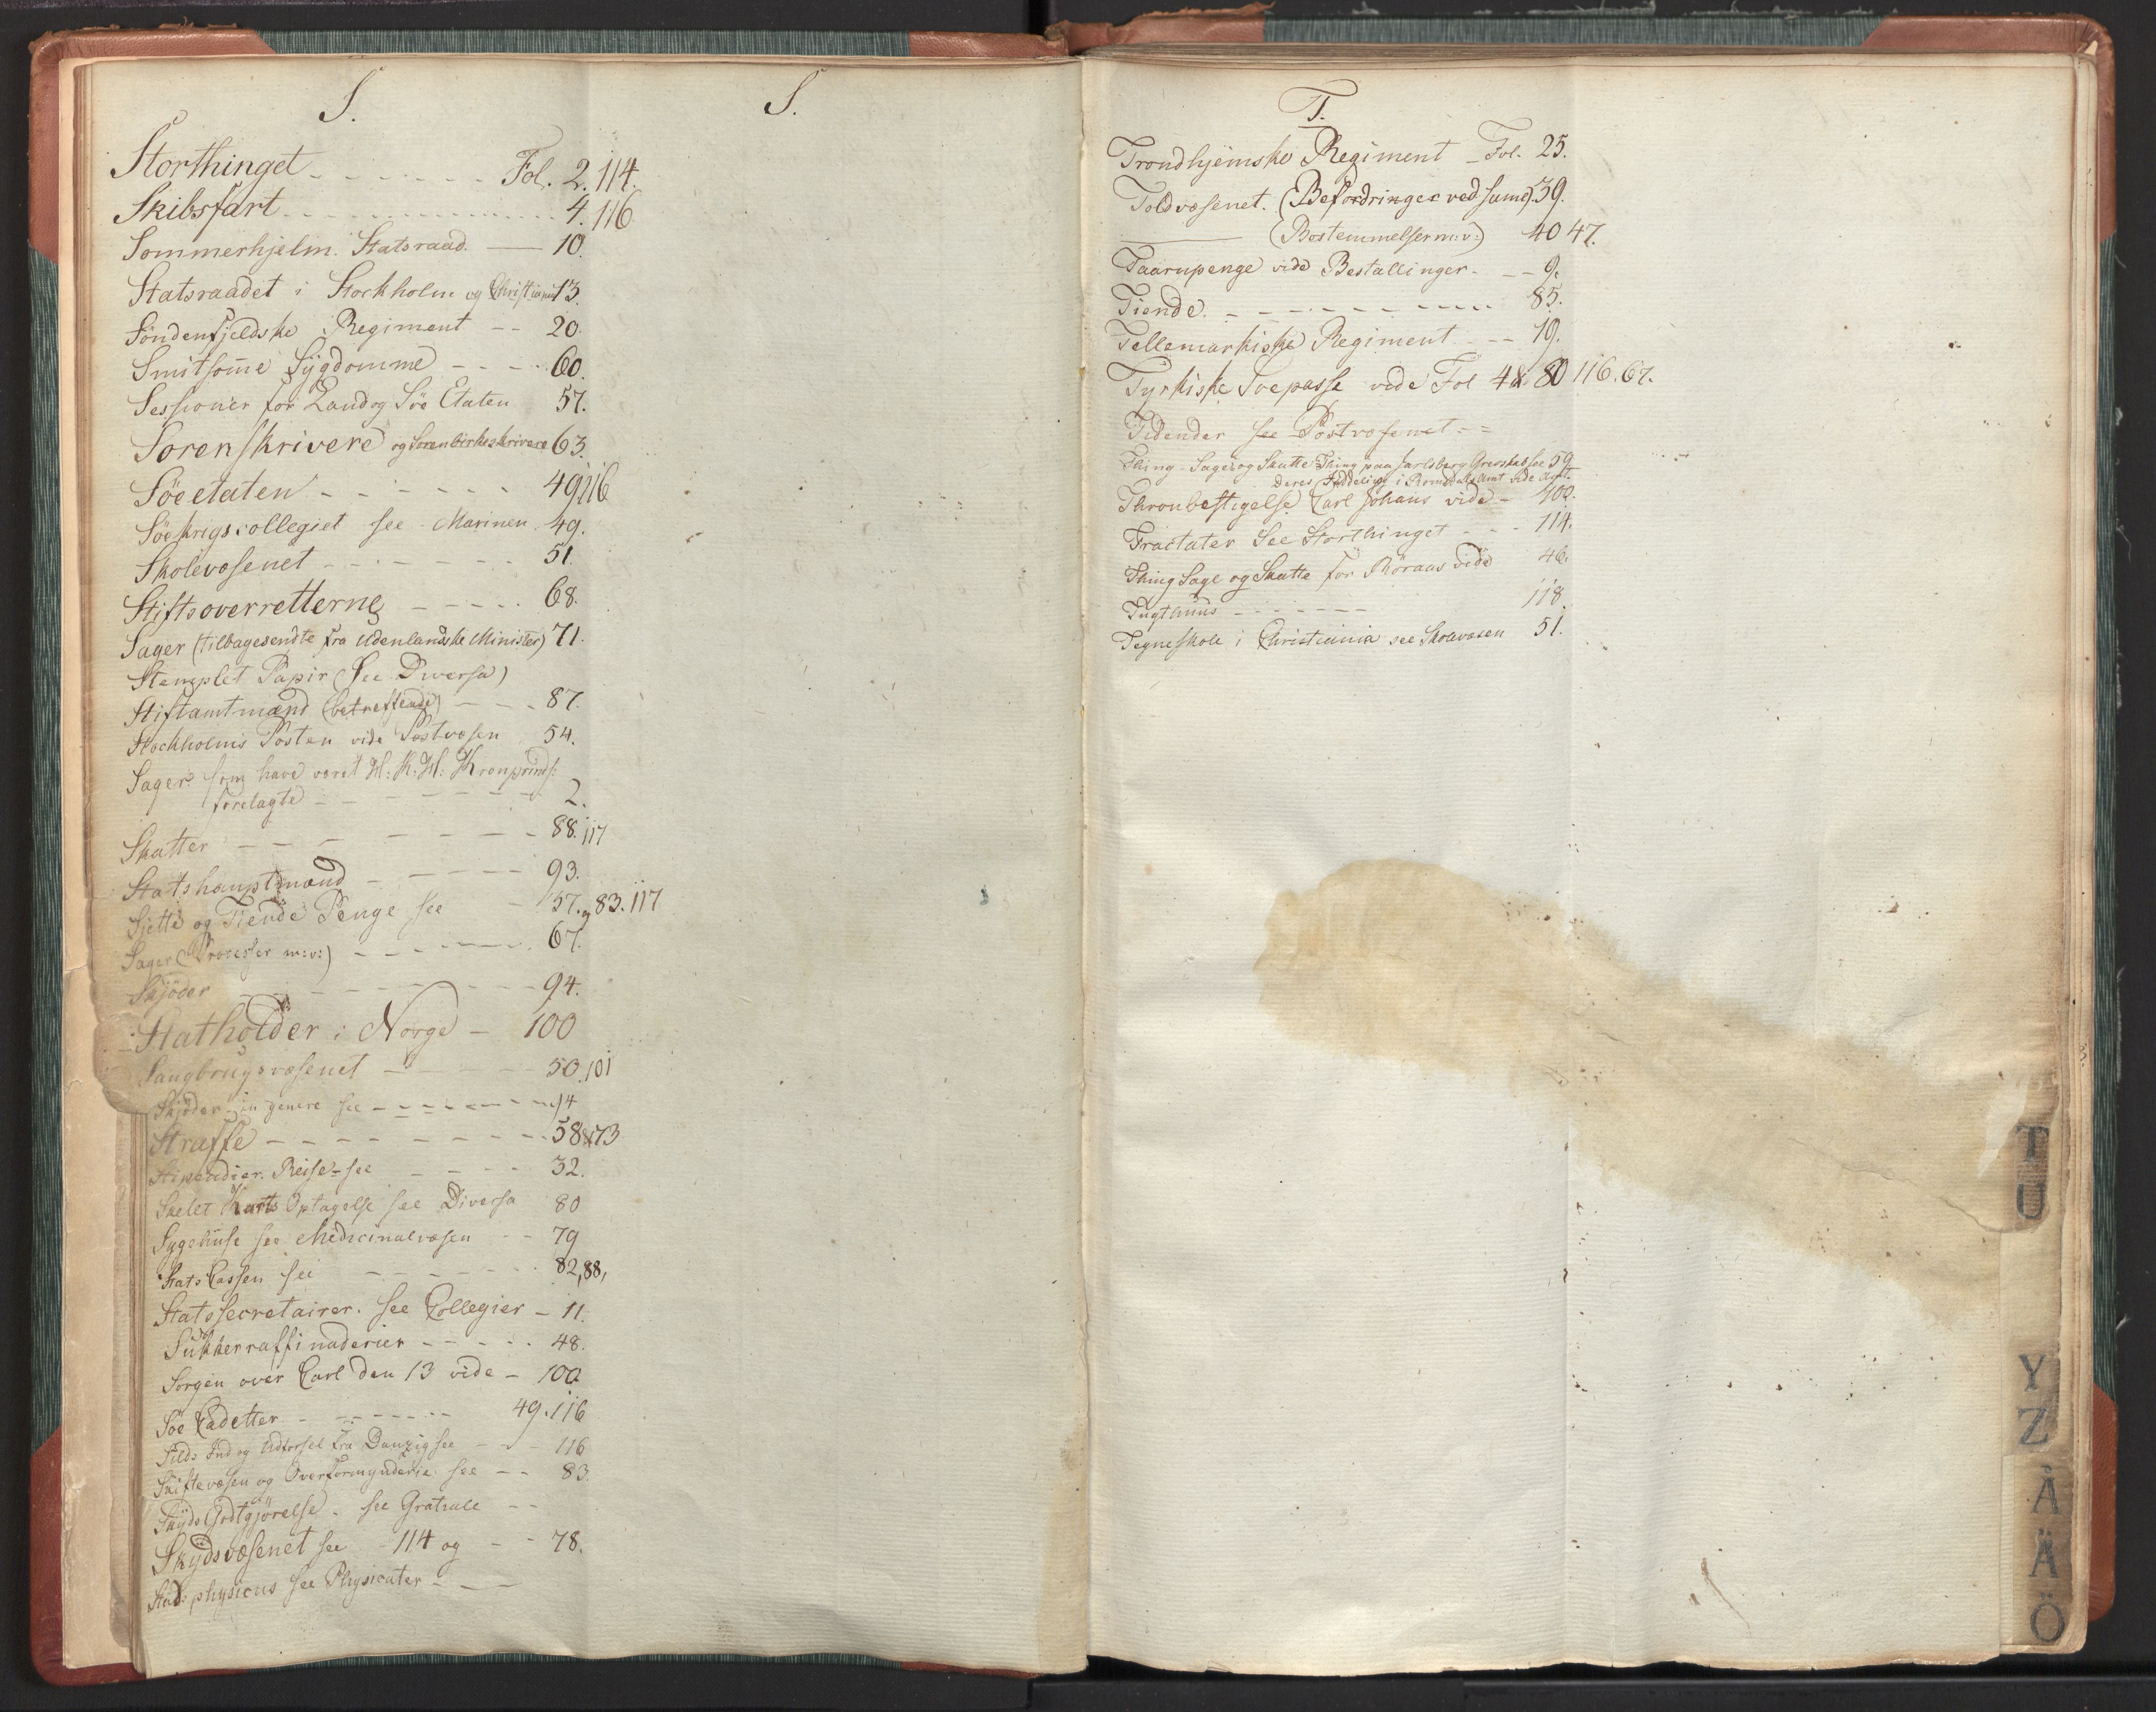 S.
Storthinget - - - - - - - Fol. 2. 114.
Skibsfart - - - - - - - - 4. 116
Sommerhjelm. Statsraad. — 10.
Statsraadet i Stockholm og Christiania 13.
Søndenfjeldske Regiment - - 20.
Smitsom̄e Sÿgdomme - - - - 60.
Sessioner for Land og Söe Etaten 57.
Sorenskrivere og Sorenbirkeskrivere 63.
Söeetaten - - - - - - 49 116
Söekrigscollegiet see Marinen 49.
Skolevæsenet - - - - - - 51.
Stiftsoverretterne - - - - - 68.
Sager (tilbagesendte fra Udenlandske Minister) 71.
Stemplet Papir (See Diversa)
Stiftamtmænd (betreffende) - - - 87.
Stockholms Posten vide Postvæsen 54.
Sager som have været H: K: H: Kronprinds:
forelagte - - - - - - - 2.
Skatter - - - - - - - 88. 117
Statshauptmænd - - - - - 93.
Sjette og Tiende Penge see - 57. 83. 117
Sager (Processer m:v:) - - - - - 67.
Skjöder - - - - - - - 94.
Statholder i Norge - 100
Saugbrugsvæsenet - - - - - 50. 101
Skjöder in genere see - - - - - - 94
Straffe - - - - - - - - 58 & 73
Stipendier. Reise- see - - - - 32.
Skelet Karts Optagelse see Diversa 80
Sygehuse see Medicinalvæsen - - 79
StatsCassen see - - - - - - 82, 88,
Statssecretairer. see Collegier - 11.
Sukkerraffinaderier - - - - - 48.
Sorgen over Carl den 13 vide - 100
Söe Cadetter - - - - - - 49. 116
Silds Ind og Udførsel fra Danzig see - - - 116
Skiftevæsen og Overformynderie see - - 83.
Skÿds Godtgjörelse - see Gratiale - -
Skÿdsvæsenet see - 114 og - - 78.
Stads physicus see Physicater - - -
S.
T.
Trondhjemske Regiment - Fol. 25.
Toldvæsenet. (Befordringer ved samme) 39.
——— (Bestemmelser m:v:) 40 47.
Taarnpenge vide Bestallinger - - - 9.
Tiende. - - - - - - - - 85.
Tellemarkiske Regiment - - - 19.
Tyrkiske Søepasse vide Fol 4 & 80 116. 67.
Tidender see Postvæsenet - -
Thing - Sage og Skatte Thing paa Jarlsberg Grevskab see 59
Deres Inddeling i Romsdals Amt vide Amt.
Thronbestigelse Carl Johans vide - 100.
Tractater See Storthinget - - - 114.
Thing Sage og Skatte for Röraas vide 46.
Tugthuus - - - - - - 118
Tegneskole i Christiania see Skolevæsen 51.
T
U
Y
Z
Å
Ä
Ö